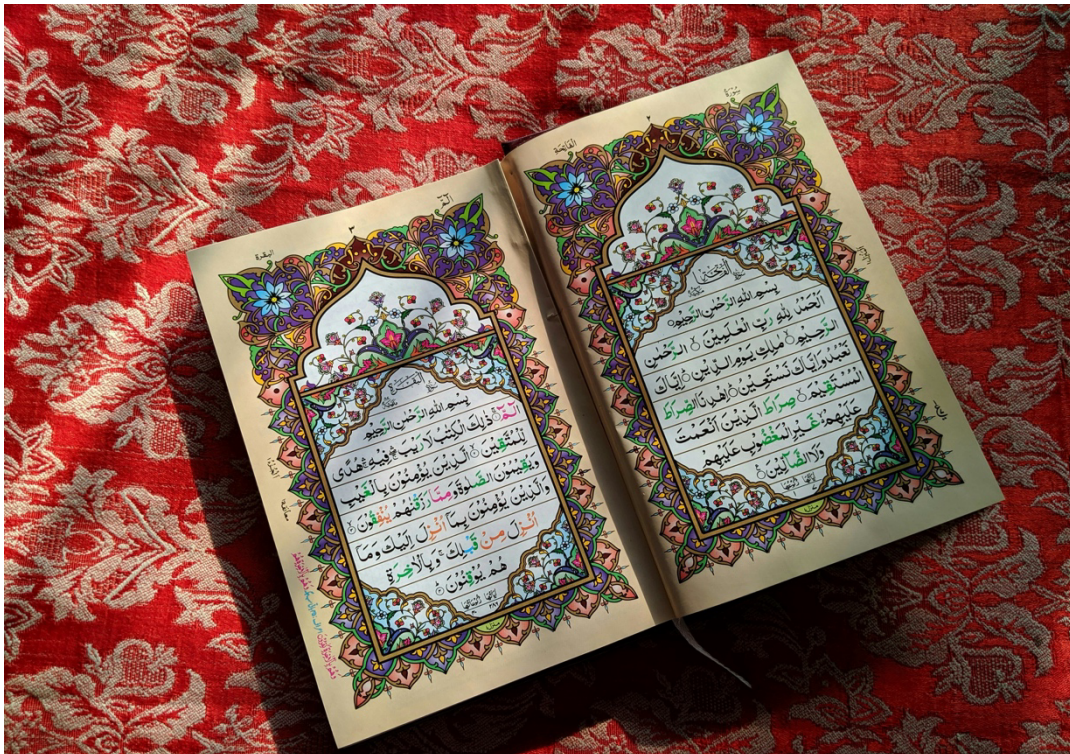 سُورَة
٢
الْفَاتِحَة
بِسْمِ اللهِ الرَّحْمٰنِ الرَّحِيْمِ
اَلْحَمْدُ لِلّٰهِ رَبِّ الْعٰلَمِيْنَ ۙ الرَّحْمٰنِ
الرَّحِيْمِ ۙ مٰلِكِ يَوْمِ الدِّيْنِ ؕ اِيَّاكَ
نَعْبُدُ وَاِيَّاكَ نَسْتَعِيْنُ ؕ اِهْدِنَا الصِّرَاطَ
الْمُسْتَقِيْمَ ۙ صِرَاطَ الَّذِيْنَ اَنْعَمْتَ
عَلَيْهِمْ ۙ غَيْرِ الْمَغْضُوْبِ عَلَيْهِمْ
وَلَا الضَّآلِّيْنَ
٣
البقرة
بِسْمِ اللهِ الرَّحْمٰنِ الرَّحِيْمِ
الٓمّٓ ۚ ذٰلِكَ الْكِتٰبُ لَا رَيْبَ ۛ فِيْهِ ۛ هُدًى
لِّلْمُتَّقِيْنَ ۙ الَّذِيْنَ يُؤْمِنُوْنَ بِالْغَيْبِ
وَيُقِيْمُوْنَ الصَّلٰوةَ وَمِمَّا رَزَقْنٰهُمْ يُنْفِقُوْنَ ۙ
وَالَّذِيْنَ يُؤْمِنُوْنَ بِمَآ اُنْزِلَ اِلَيْكَ وَمَآ
اُنْزِلَ مِنْ قَبْلِكَ ۚ وَبِالْاٰخِرَةِ
هُمْ يُوْقِنُوْنَ